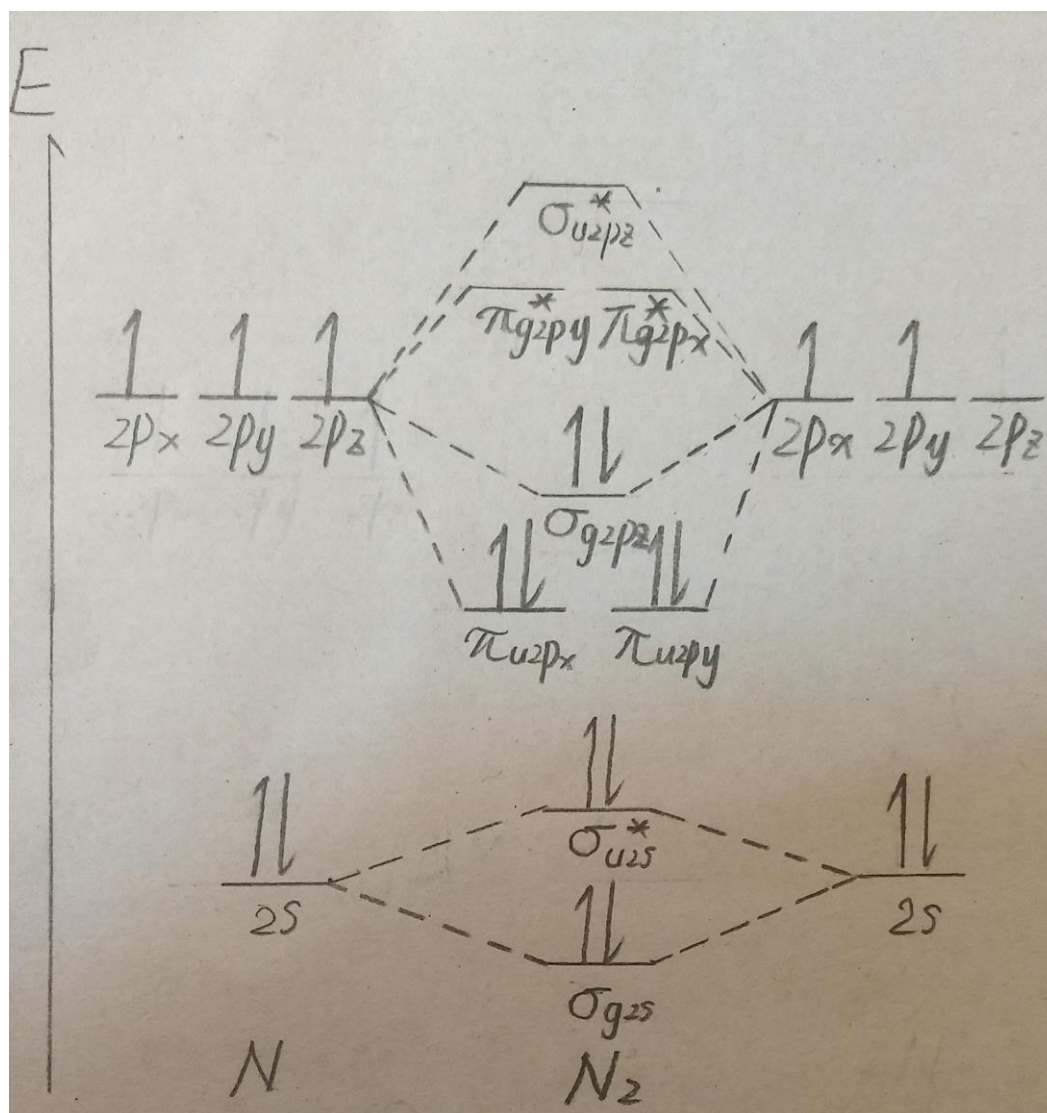 E
σ*u2pz
π*g2py π*g2px
2px 2py 2pz 2px 2py 2pz
σg2pz
πu2px πu2py
σ*u2s
2s 2s
σg2s
N N2